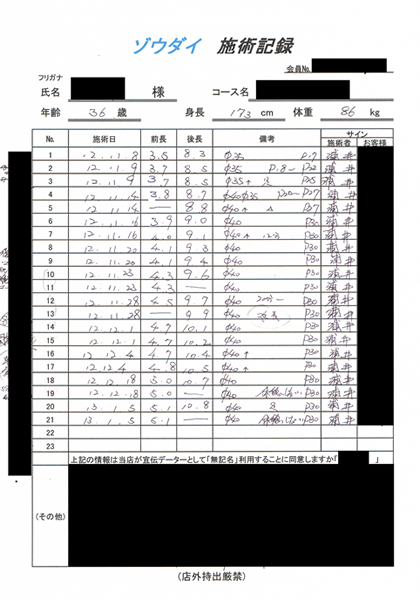 ゾウダイ 施術記録
会員No.
フリガナ
氏名 様 コース名
年齢 36 歳 身長 173 cm 体重 86 kg
No. 施術日 前長 後長 備考 サイン
施術者 お客様
1 12.11.8 3.5 8.3 Φ35 浦井
2 3.7 8.5 Φ35 浦井
3 12.11.9 3.7 8.5 Φ35↑ 浦井
4 12.11.14 3.8 8.7 浦井
5 12.11.14 — 8.8 Φ40↑ 浦井
6 12.11.16 3.9 9.0 Φ40 浦井
7 12.11.16 4.0 9.1 Φ40↑ P30 浦井
8 12.11.20 4.1 9.3 Φ40 P30 浦井
9 12.11.20 4.1 9.4 Φ40 P30 浦井
10 12.11.23 4.3 9.6 Φ40 P30 浦井
11 12.11.23 4.3 — Φ40 P30 浦井
12 12.11.28 4.5 9.7 Φ40 P30 浦井
13 12.11.28 — 9.9 Φ40 P30 浦井
14 12.12.1 4.7 10.1 Φ40 P30 浦井
15 12.12.1 4.7 10.2 Φ40 P30 浦井
16 12.12.4 4.7 10.4 Φ40↑ P30 浦井
17 12.12.4 4.8 10.5 Φ40↑ P30 浦井
18 12.12.18 5.0 10.7 Φ40 P30 浦井
19 12.12.18 5.0 — Φ40 P30 浦井
20 13.1.5 5.1 10.8 Φ40 P30 浦井
21 13.1.5 5.1 — Φ40 P30 浦井
22
23
上記の情報は当店が宣伝データーとして「無記名」利用することに同意しますか「 」
(その他)
(店外持出厳禁)